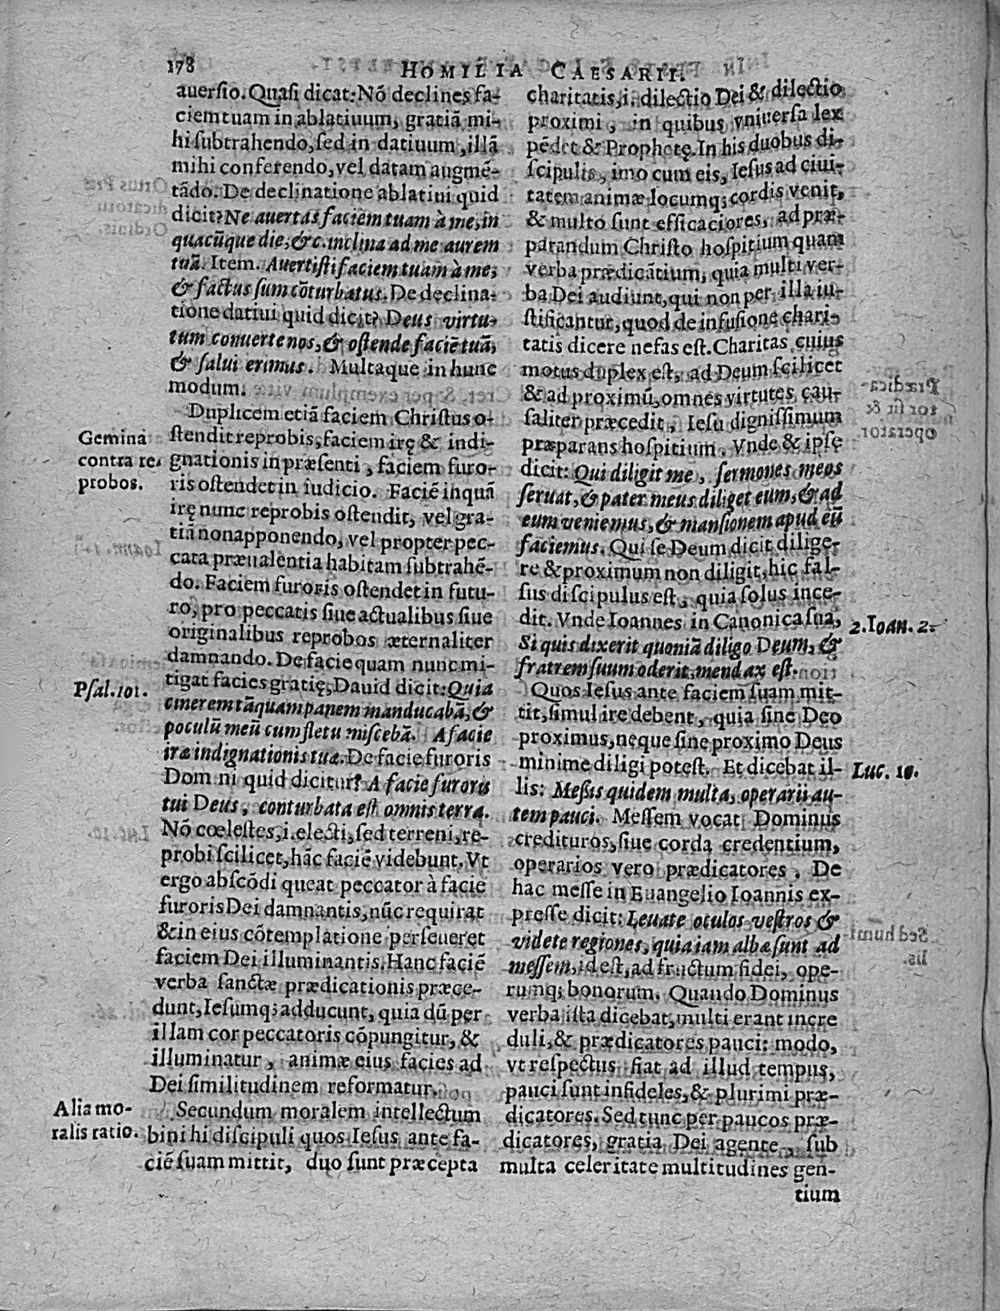 178
HOMILIA CAESARII.
auersio. Quasi dicat: Nõ declines fa-
ciem tuam in ablatiuum, gratiã mi-
hi subtrahendo, sed in datiuum, illã
mihi conferendo, vel datam augmẽ-
tãdo. De declinatione ablatiui quid
dicit? Ne auertas faciem tuam à me, in
quacũque die, &c. inclina ad me aurem
tuã. Item. Auertisti faciem tuam à me,
& factus sum cõturbatus. De declina-
tione datiui quid dicit? Deus virtu-
tum conuerte nos, & ostende faciẽ tuã,
& salui erimus. Multaque in hunc
modum.
Duplicem etiã faciem Christus o-
stendit reprobis, faciem irę & indi-
gnationis in præsenti, faciem furo-
ris ostendet in iudicio. Faciẽ inquã
irę nunc reprobis ostendit, vel gra-
tiã non apponendo, vel propter pec-
cata præualentia habitam subtrahẽ-
do. Faciem furoris ostendet in futu-
ro, pro peccatis siue actualibus siue
originalibus reprobos æternaliter
damnando. De facie quam nunc mi-
tigat facies gratię, Dauid dicit: Quia
cinerem tãquam panem manducabã, &
poculũ meũ cum fletu miscebã. A facie
iræ indignationis tuæ. De facie furoris
Dom ni quid dicitur? A facie furoris
tui Deus, conturbata est omnis terra.
Nõ cœlestes, i. electi, sed terreni, re-
probi scilicet, hãc faciẽ videbunt. Vt
ergo abscõdi queat peccator à facie
furoris Dei damnantis, nũc requirat
& in eius cõtemplatione perseueret
faciem Dei illuminantis. Hanc faciẽ
verba sanctæ prædicationis præce-
dunt, Iesumq; adducunt, quia dũ per
illam cor peccatoris cõpungitur, &
illuminatur, animæ eius facies ad
Dei similitudinem reformatur.
Secundum moralem intellectum
bini hi discipuli quos Iesus ante fa-
ciẽ suam mittit, duo sunt præcepta
Gemina
contra re-
probos.
Psal. 101.
Alia mo-
ralis ratio.
charitatis, i. dilectio Dei & dilectio
proximi, in quibus vniuersa lex
pẽdet & Prophetę. In his duobus di-
scipulis, imo cum eis, Iesus ad ciui-
tatem animæ locumq; cordis venit,
& multò sunt efficaciores, ad præ-
parandum Christo hospitium quam
verba prædicãtium, quia multi ver-
ba Dei audiunt, qui non per illa iu-
stificantur, quod de infusione chari-
tatis dicere nefas est. Charitas cuius
motus duplex est, ad Deum scilicet
& ad proximũ, omnes virtutes cau-
saliter præcedit, Iesu dignissimum
præparans hospitium. Vnde & ipse
dicit: Qui diligit me, sermones meos
seruat, & pater meus diliget eum, & ad
eum veniemus, & mansionem apud eũ
faciemus. Qui se Deum dicit dilige-
re & proximum non diligit, hic fal-
sus discipulus est, quia solus ince-
dit. Vnde Ioannes in Canonica sua,
Si quis dixerit quoniã diligo Deum, &
fratrem suum oderit, mendax est.
Quos Iesus ante faciem suam mit-
tit, simul ire debent, quia sine Deo
proximus, neque sine proximo Deus
minime diligi potest. Et dicebat il-
lis: Messis quidem multa, operarii au-
tem pauci. Messem vocat Dominus
credituros, siue corda credentium,
operarios vero prædicatores. De
hac messe in Euangelio Ioannis ex-
presse dicit: Leuate oculos vestros &
videte regiones, quia iam albæ sunt ad
messem, id est, ad fructum fidei, ope-
rumq; bonorum. Quando Dominus
verba ista dicebat, multi erant incre
duli, & prædicatores pauci: modo,
vt respectus fiat ad illud tempus,
pauci sunt infideles, & plurimi præ-
dicatores. Sed tunc per paucos præ-
dicatores, gratia Dei agente, sub
multa celeritate multitudines gen-
tium
2. Ioan. 2.
Luc. 10.